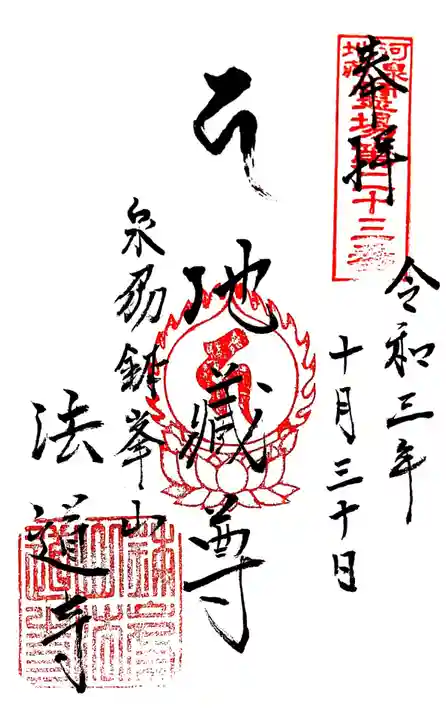 奉拝
河泉地蔵霊場第二十三番
令和三年
十月三十日
地蔵尊
泉州鉢峯山
法道寺